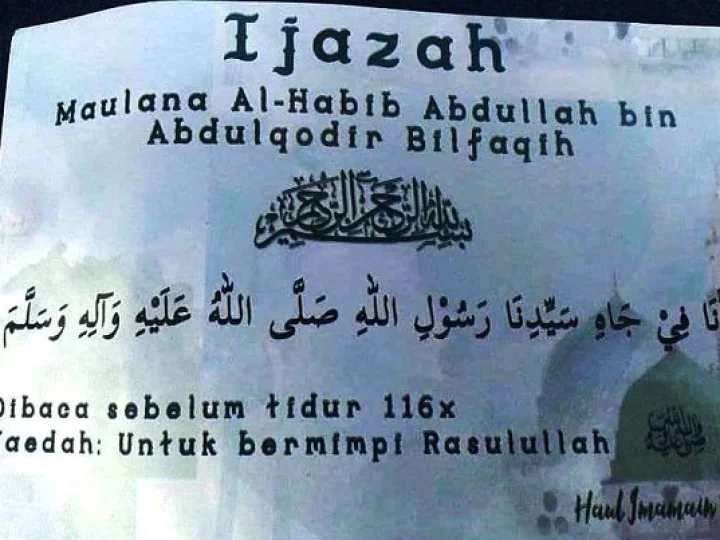 Ijazah
Maulana Al-Habib Abdullah bin
Abdulqodir Bilfaqih
بسم الله الرحمن الرحيم
نَا فِيْ جَاهِ سَيِّدِنَا رَسُوْلِ اللهِ صَلَّى اللهُ عَلَيْهِ وَآلِهِ وَسَلَّمَ
Dibaca sebelum tidur 116x
Faedah: Untuk bermimpi Rasulullah
ﷺ
Haul Imamain